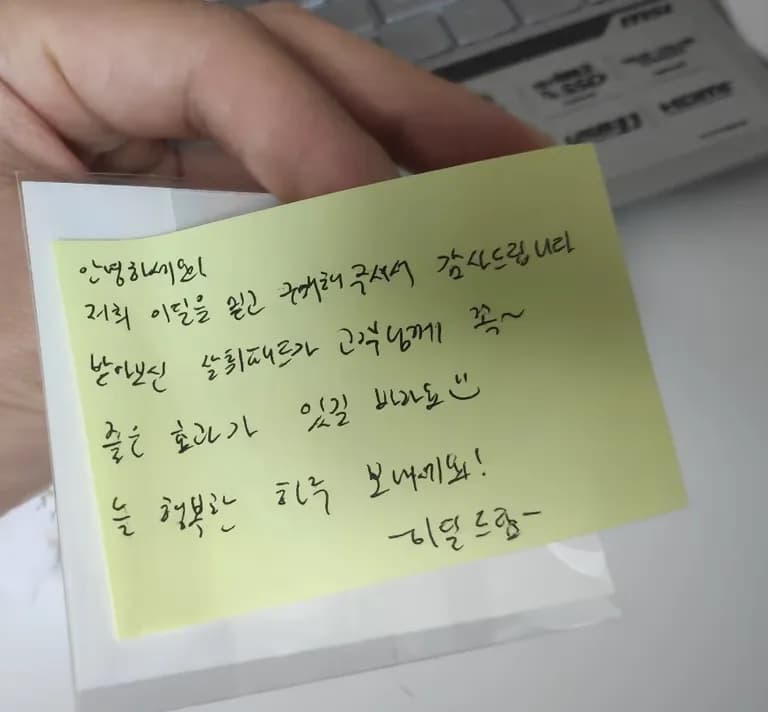 msi
HDMI
안녕하세요!
저희 이달을 믿고 구매해주셔서 감사드립니다
받아보신 살휘패드가 고객님께 꼭~
좋은 효과가 있길 바라요
늘 행복한 하루 보내세요!
-이달 드림-